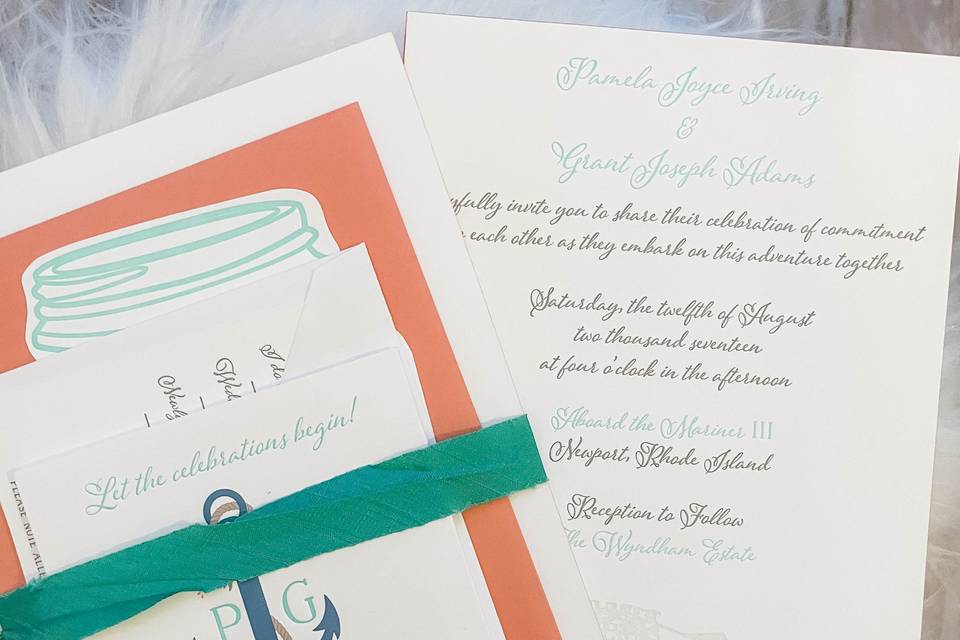 Pamela Joyce Irving
&
Grant Joseph Adams
invite you to share their celebration of commitment
each other as they embark on this adventure together
Saturday, the twelfth of August
two thousand seventeen
at four o'clock in the afternoon
Aboard the Mariner III
Newport, Rhode Island
Reception to Follow
The Wyndham Estate
I do
Let the celebrations begin!
PLEASE NOTE
P G